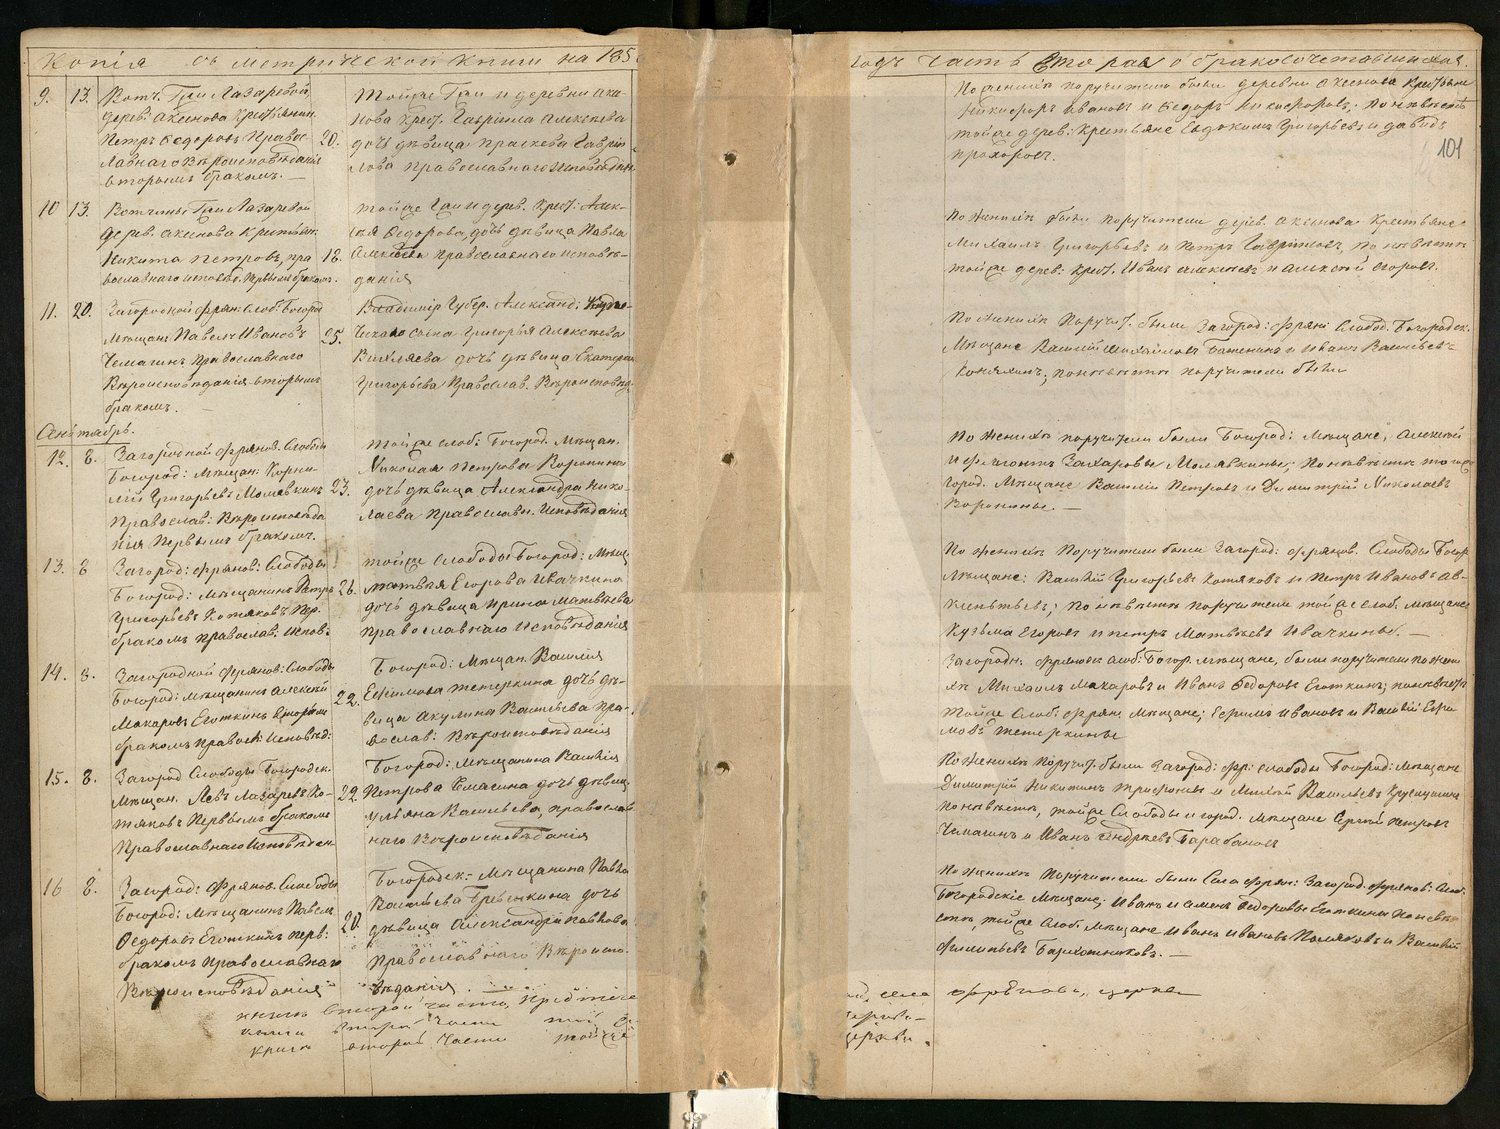 Копія съ метрической книги на 185 годъ Часть Вторая о бракосочетавшихся.
101
9. 13. Вотч. Г-жи Лазаревой
дерев: Аксенова Крестьянин
Петръ Федоровъ Правос
лавнаго Вѣроисповѣданія
вторымъ бракомъ. —
20.
тойже Г-жи и деревни Аксе
нова Крест. Гаврiила Алексѣева
дочь дѣвица Праскева Гаврiи
лова православнаго исповѣдан
По женихѣ поручители были деревни Аксенова Крестьяне
Никифоръ Ивановъ и Федоръ Никифоровъ; по невѣстѣ
тойже дерев: Крестьяне Евдокимъ Григорьевъ и Давидъ
Прохоровъ.
10 13. Вотчины Г-жи Лазаревой
дерев. Аксенова Крестьян.
Никита Петровъ, пра
вославнаго исповѣд. Первымъ бракомъ.
18.
тойже Г-жи и дерев. Крест: Алек-
сѣя Федорова, дочь дѣвица Павла
Алексѣева Православнаго исповѣ-
данія
По женихѣ были поручители дерев. Аксенова Крестьяне
Михаилъ Григорьевъ и Петръ Гавриловъ, по невѣстѣ
тойже дерев: Крест. Иванъ Алексѣевъ и Алексѣй Егоровъ.
11. 20. Загородной Фрян: Слоб: Богород
Мѣщан: Павелъ Ивановъ
Чемагинъ православнаго
Вѣроисповѣданія вторымъ
бракомъ. —
25.
Владимір Губер. Александ:
Григорья Алексѣева
Вихляева дочь дѣвица Екатерин
Григорьева Православ. Вѣроисповѣд.
По женихѣ поручит. были Загород: Фрян: Слобод. Богородск.
Мѣщане Василій Михайловъ Баженинъ и Иванъ Васильевъ
Конялинъ; по невѣстѣ поручители были
Сентябрь.
12. 8. Загородной Фрянов. Слободы
Богород: Мѣщан: Корни
лій Григорьевъ Молявкинъ
Православ: Вѣроисповѣда
нія Первымъ бракомъ.
23.
тойже слоб: Богород. Мѣщан.
Николая Петрова Воронина
дочь дѣвица Александра Нико-
лаева Православн. исповѣданія
По женихѣ поручители были Богород: Мѣщане, Алексѣй
и Захаровы Молявкины; по невѣстѣ того же
город. Мѣщане Василій Петровъ и Димитрій Николаевъ
Воронины. —
13. 8 Загород: Фрянов: Слободы
Богород: Мѣщанинъ Петръ
Григорьевъ Котяковъ Пер.
бракомъ Православ. Испов:
21.
тойже Слободы Богород: Мѣщ.
Матвѣя Егорова Ивачкина
дочь дѣвица Ирина Матвѣева
Православнаго Исповѣданія
По женихѣ Поручители были Загород: Фрянов. Слободы Богор
Мѣщане: Василій Григорьевъ Котяковъ и Петръ Ивановъ Ав-
; по невѣстѣ поручители тойже слоб. мѣщане
Кузьма Егоровъ и Петръ Матвѣевъ Ивачкины. —
14. 8. Загородной Фрянов: Слободы
Богород: Мѣщанинъ Алексѣй
Макаровъ Еготкинъ вторымъ
бракомъ Правосл: Исповѣд:
22.
Богород: Мѣщан. Василія
Ефимова Тетеркина дочь дѣ-
вица Акулина Васильева Пра-
вослав: Вѣроисповѣданія
Загородн. Фрянов. слоб: Богор. Мѣщане, были поручители по жени
хѣ Михаилъ Макаровъ и Иванъ Федоровъ Еготкинъ; по невѣстѣ
тойже Слоб: Фрян: Мѣщане; Ефимъ Ивановъ и Василій Ефи
мовъ Тетеркины
15. 8. Загород Слободы Богородск.
Мѣщан. Левъ Лазаревъ Ко-
тяковъ Первымъ бракомъ
Православнаго Исповѣдан.
22
Богород: Мѣщанина Василія
Петрова Смагина дочь дѣвиц.
Ульяна Васильева, Православ
наго Вѣроисповѣданія
По женихѣ поручит. были Загород: Фр: Слободы Богород: Мѣщане
Димитрій Никитинъ Трифоновъ и Михей Васильевъ
по невѣстѣ, тойже Слободы и город. Мѣщане Сергѣй Петровъ
Чемагинъ и Иванъ Андреевъ Барабановъ
16 8. Загород: Фрянов. Слободы
Богород: Мѣщанинъ Павелъ
Федоровъ Еготкинъ перв:
бракомъ православнаго
Вѣроисповѣданія
20.
Богородск: Мѣщанина Павла
Васильева Гребенкина дочь
дѣвица Александра Павлова
Православнаго Вѣроиспо-
вѣданія.
По женихѣ Поручители были Села Фрян: Загород. Фрянов: Слоб.
Богородскіе Мѣщане; Иванъ и Семенъ Федоровы Еготкины по невѣ
стѣ, тойже Слоб. Мѣщане Иванъ Ивановъ Поляковъ и Василій
Филиповъ Бархотниковъ. —
второй части, села Фрянова, церкви
книги второй части той
книги второй части тойже церкви.